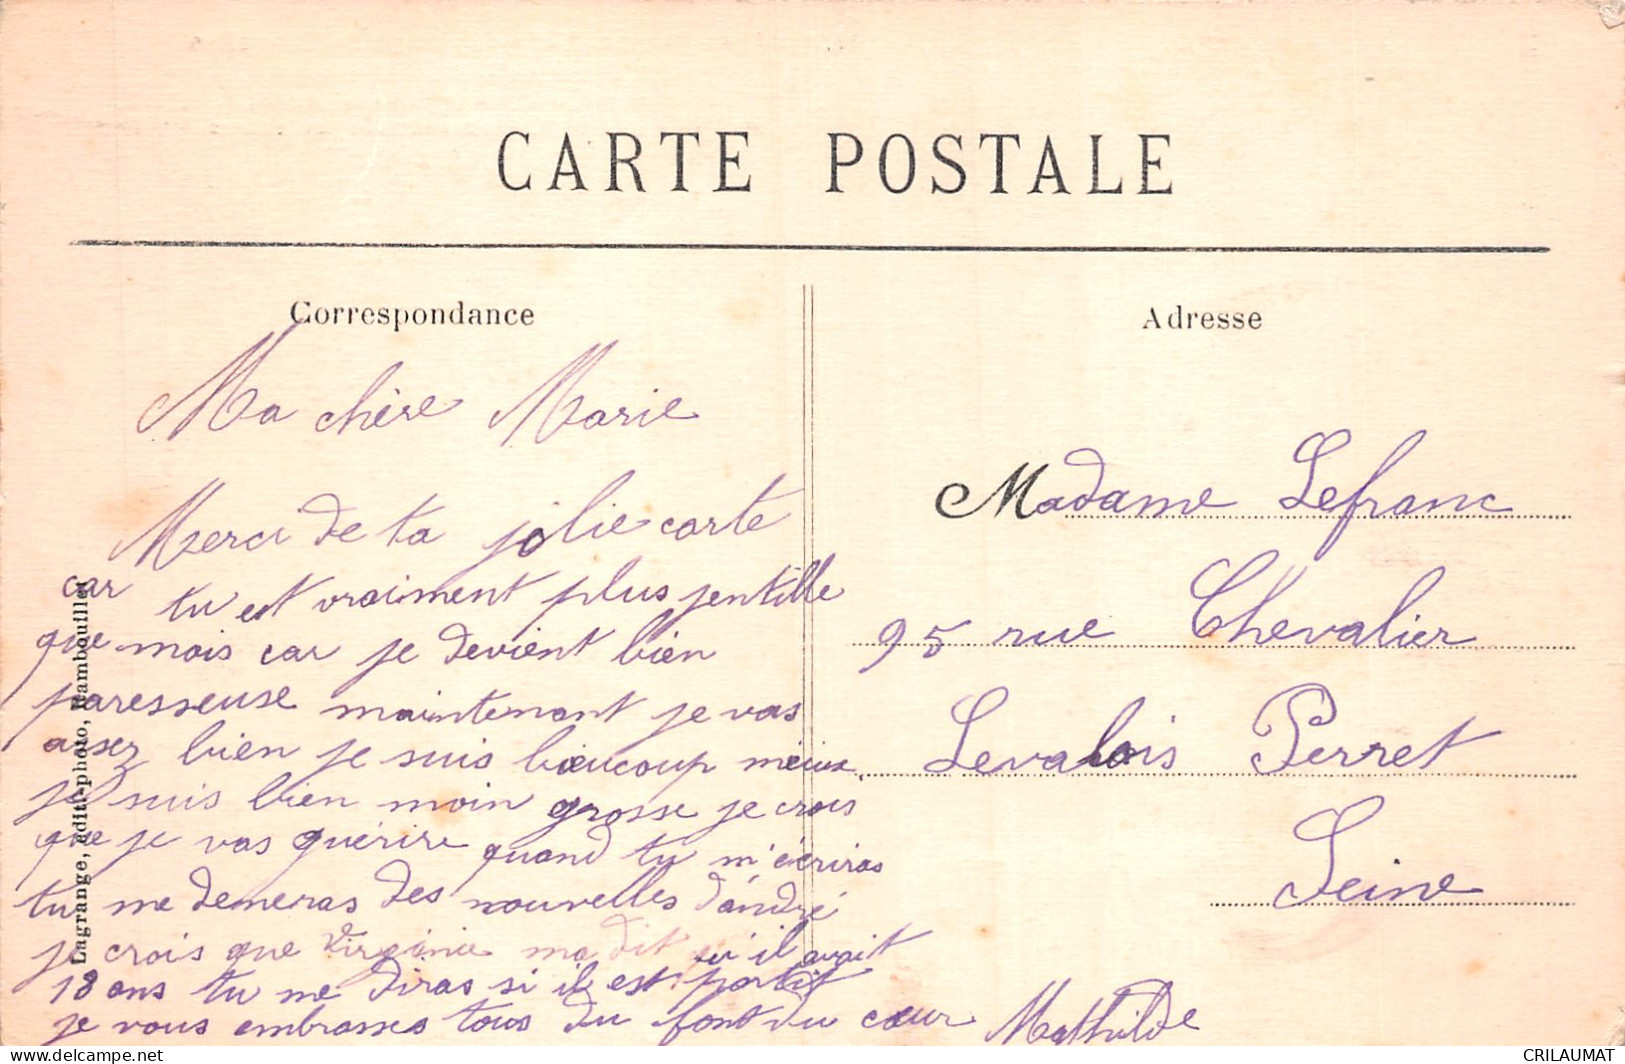 CARTE POSTALE
Correspondance
Ma chère Marie
Merci de ta jolie carte
car tu est vraiment plus jentille
que mois car je devient bien
paresseuse maintenant je vas
assez bien je suis beaucoup mieux
je suis bien moin grosse je crois
que je vas guérire quand tu m'écriras
tu me demeras des nouvelles d'andré
je crois que Virginie ma dit qu'il avait
18 ans tu me diras si il est partit
je vous embrasses tous du font du cœur Mathilde
Adresse
Madame Lefranc
95 rue Chevalier
Levalois Perret
Seine
Lagrange, édit.-photo, Rambouillet
CRILAUMAT
www.delcampe.net